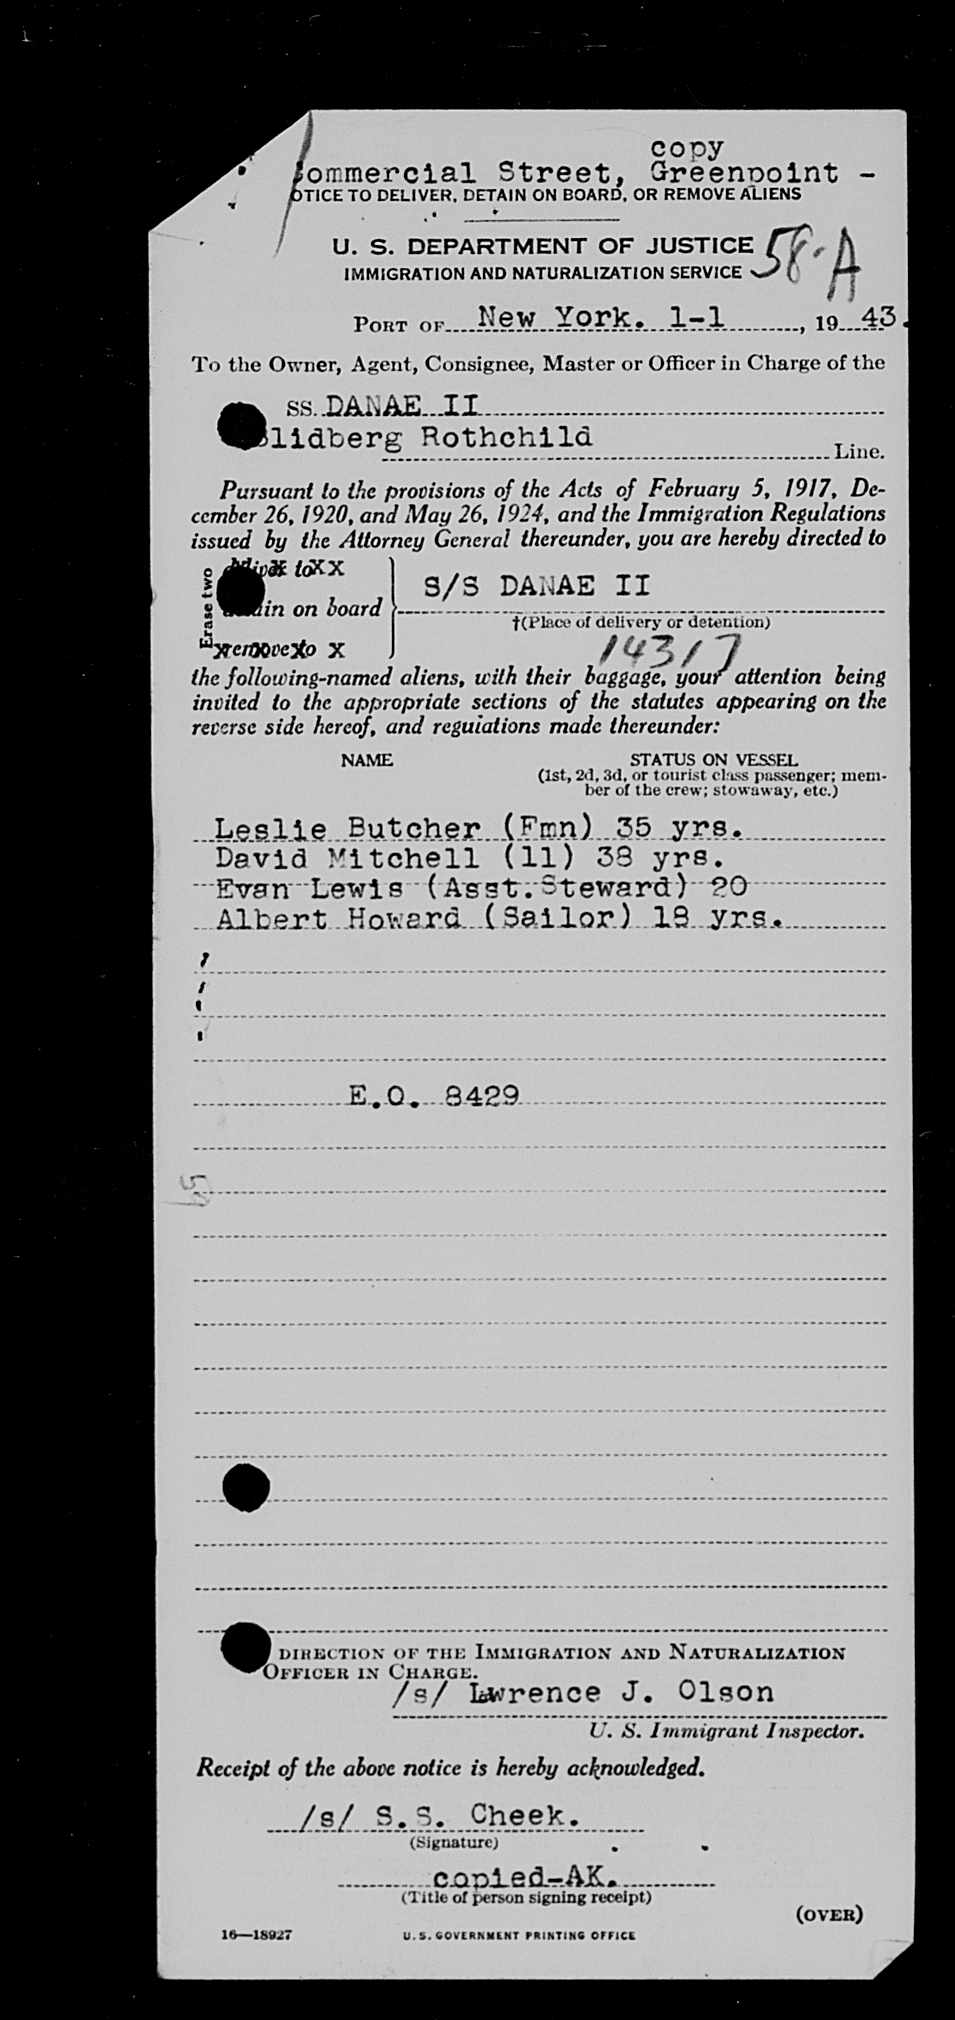 copy
ommercial Street, Greenpoint -
OTICE TO DELIVER, DETAIN ON BOARD, OR REMOVE ALIENS
U. S. DEPARTMENT OF JUSTICE
IMMIGRATION AND NATURALIZATION SERVICE
58-A
PORT OF New York. 1-1, 1943.
To the Owner, Agent, Consignee, Master or Officer in Charge of the
SS. DANAE II
lidberg Rothchild
Line.
Pursuant to the provisions of the Acts of February 5, 1917, De-
cember 26, 1920, and May 26, 1924, and the Immigration Regulations
issued by the Attorney General thereunder, you are hereby directed to
Erase two
to XX
in on board
remove to X
S/S DANAE II
†(Place of delivery or detention)
14317
the following-named aliens, with their baggage, your attention being
invited to the appropriate sections of the statutes appearing on the
reverse side hereof, and regulations made thereunder:
NAME
STATUS ON VESSEL
(1st, 2d, 3d, or tourist class passenger; mem-
ber of the crew; stowaway, etc.)
Leslie Butcher (Fmn) 35 yrs.
David Mitchell (11) 38 yrs.
Evan Lewis (Asst.Steward) 20
Albert Howard (Sailor) 18 yrs.
E.O. 8429
DIRECTION OF THE IMMIGRATION AND NATURALIZATION
OFFICER IN CHARGE.
/s/ Lawrence J. Olson
U. S. Immigrant Inspector.
Receipt of the above notice is hereby acknowledged.
/s/ S.S. Cheek.
(Signature)
copied-AK.
(Title of person signing receipt)
(OVER)
16—18927
U. S. GOVERNMENT PRINTING OFFICE